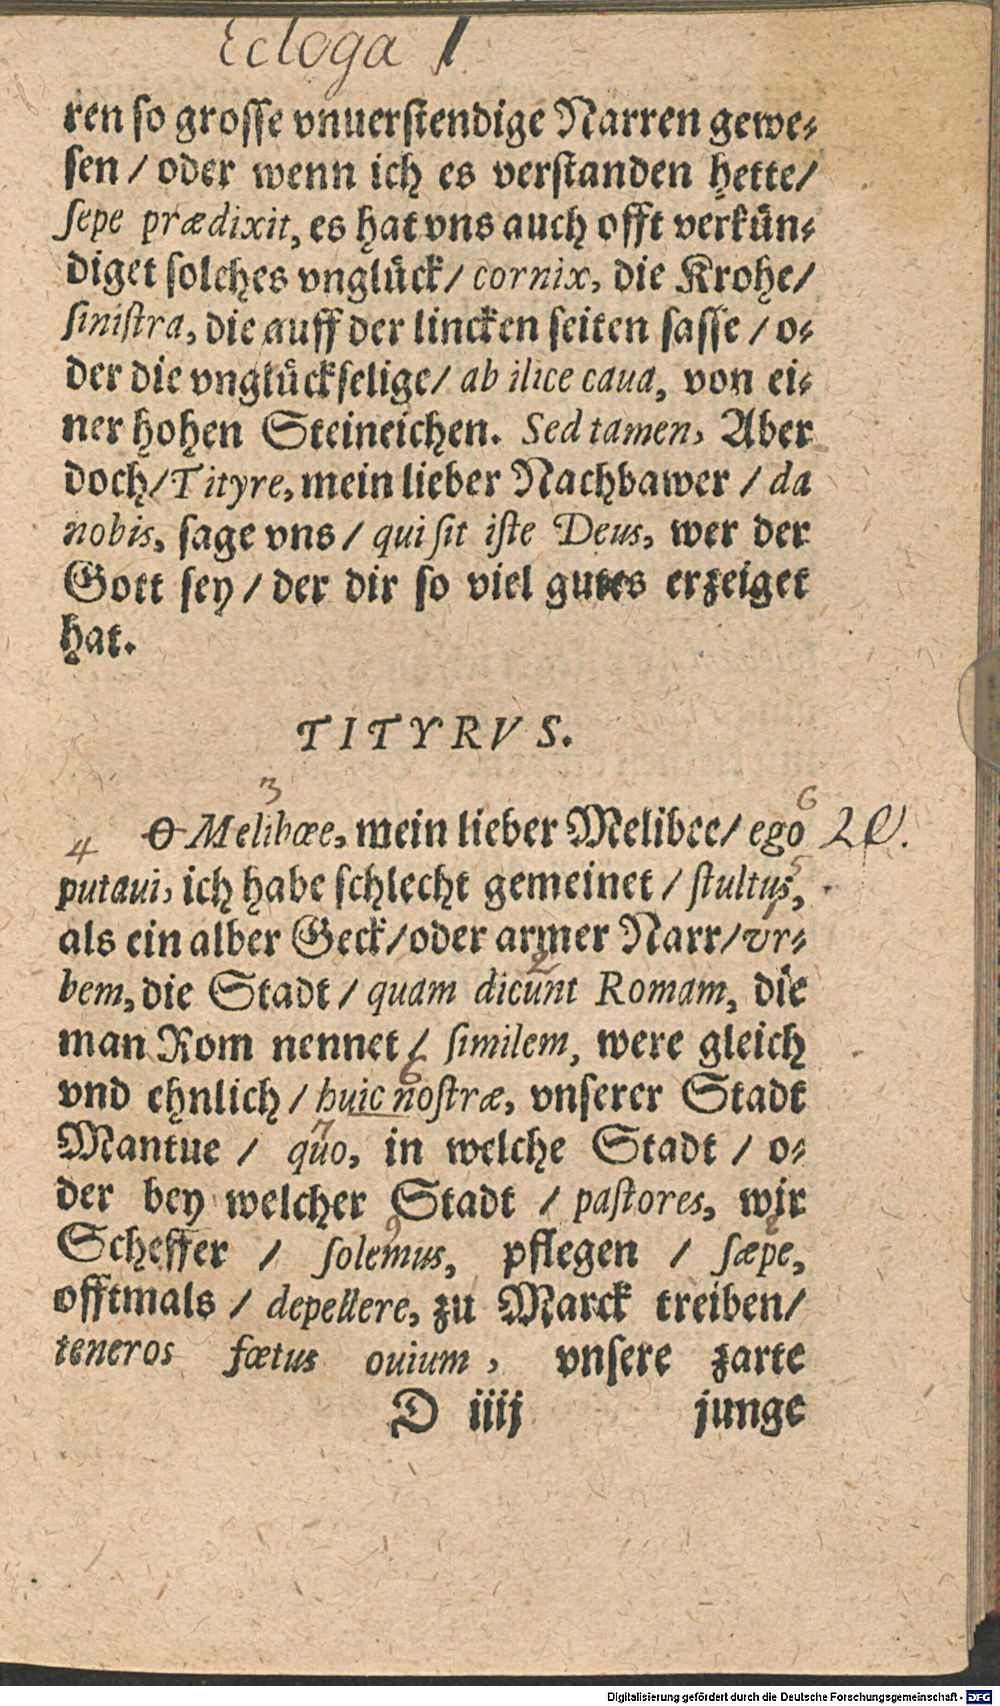 Ecloga 1
ren so grosse vnuerstendige Narren gewe⸗
sen / oder wenn ich es verstanden hette/
sepe prædixit, es hat vns auch offt verkün⸗
diget solches vnglück/ cornix, die Krohe/
sinistra, die auff der lincken seiten sasse / o⸗
der die vnglückselige/ ab ilice caua, von ei⸗
ner hohen Steineichen. Sed tamen, Aber
doch/Tityre, mein lieber Nachbawer / da
nobis, sage vns / qui sit iste Deus, wer der
Gott sey / der dir so viel gutes erzeiget
hat.
TITYRVS.
3 6
O Melibœe, mein lieber Melibee/ ego 20.
4 5
putaui, ich habe schlecht gemeinet / stultus,
1
als ein alber Geck/oder armer Narr/vr⸗
2
bem, die Stadt / quam dicunt Romam, die
man Rom nennet / similem, were gleich
6
vnd ehnlich / huic nostræ, vnserer Stadt
7
Mantue / quo, in welche Stadt / o⸗
der bey welcher Stadt / pastores, wir
9 8
Scheffer / solemus, pflegen / sæpe,
offtmals / depellere, zu Marck treiben/
teneros fœtus ouium, vnsere zarte
D iiij junge
Digitalisierung gefördert durch die Deutsche Forschungsgemeinschaft - DFG